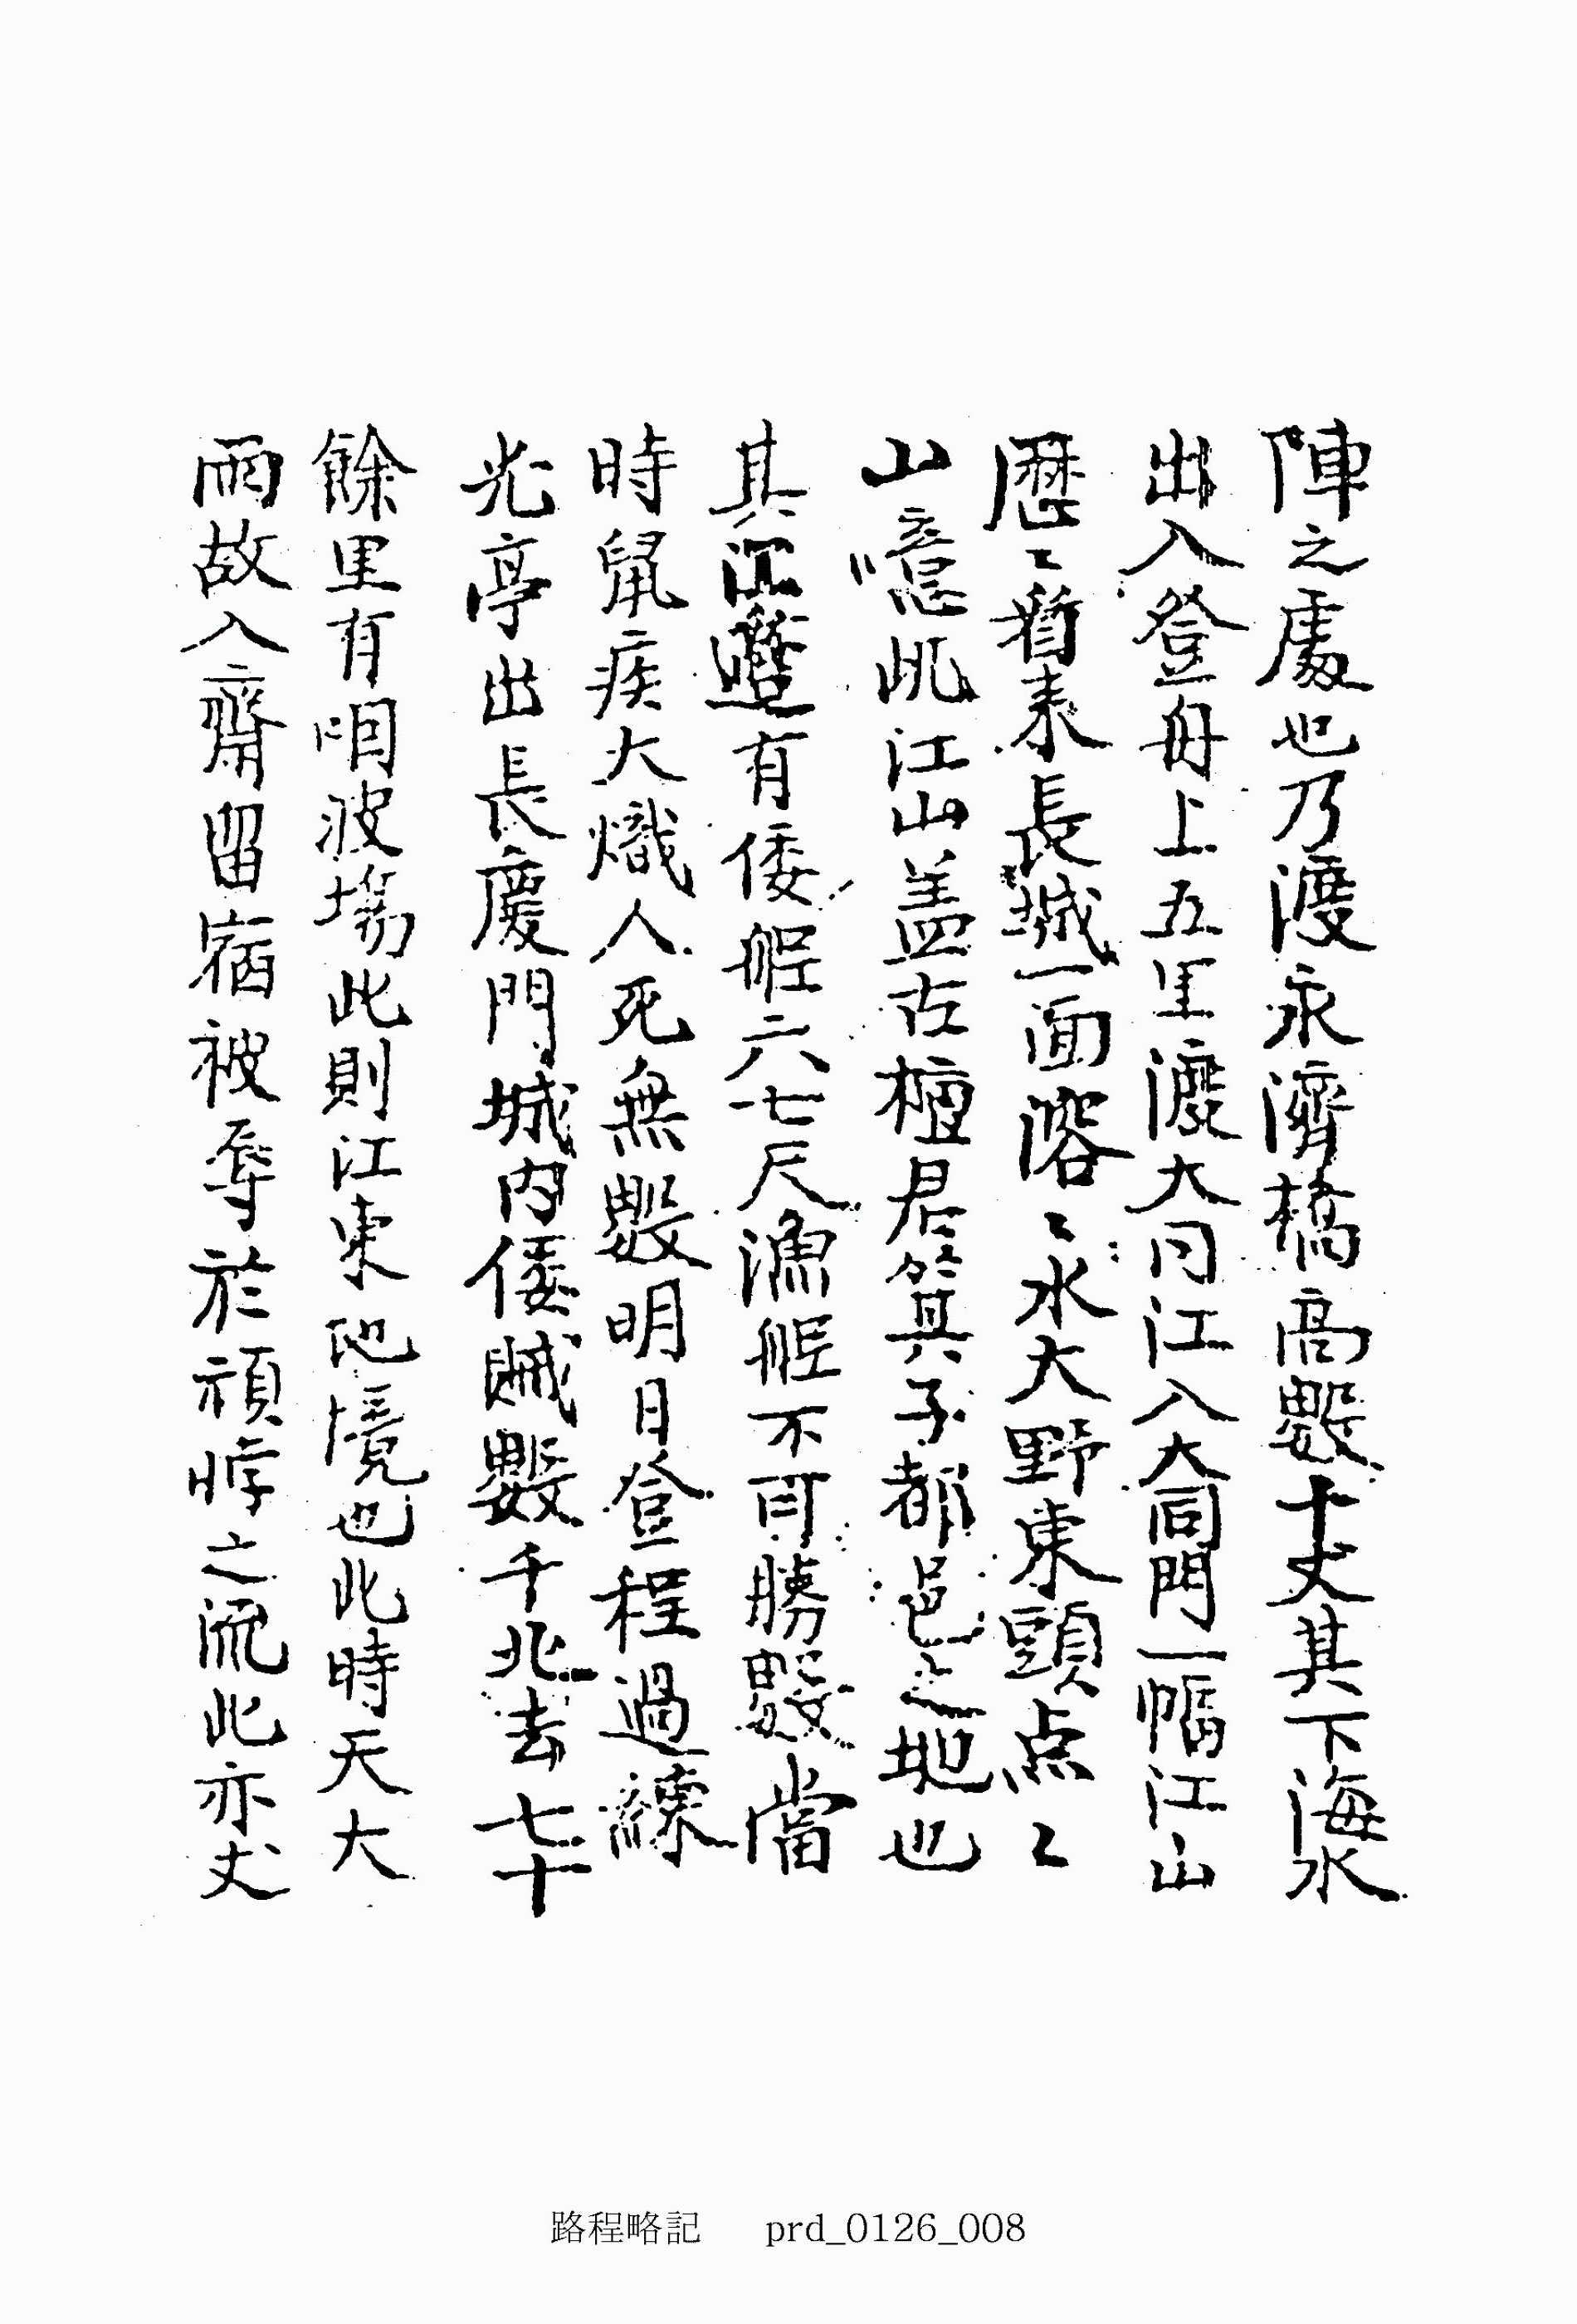 陣之處也乃渡永濟橋高數十丈其下海水
出入登舟上五里渡大同江入大同門一幅江山
歷〻看來長城一面溶〻水大野東頭点〻
山噫此江山盖古檀君箕子都邑之地也
其江邊有倭舡六七尺漁舡不可勝數當
時鼠疾大熾人死無數明日登程過練
光亭出長慶門城內倭賊數千北去七十
餘里有咽波場此則江東地境也此時天大
雨故入齋留宿被辱於頑悖之流此亦丈
路程略記 prd_0126_008